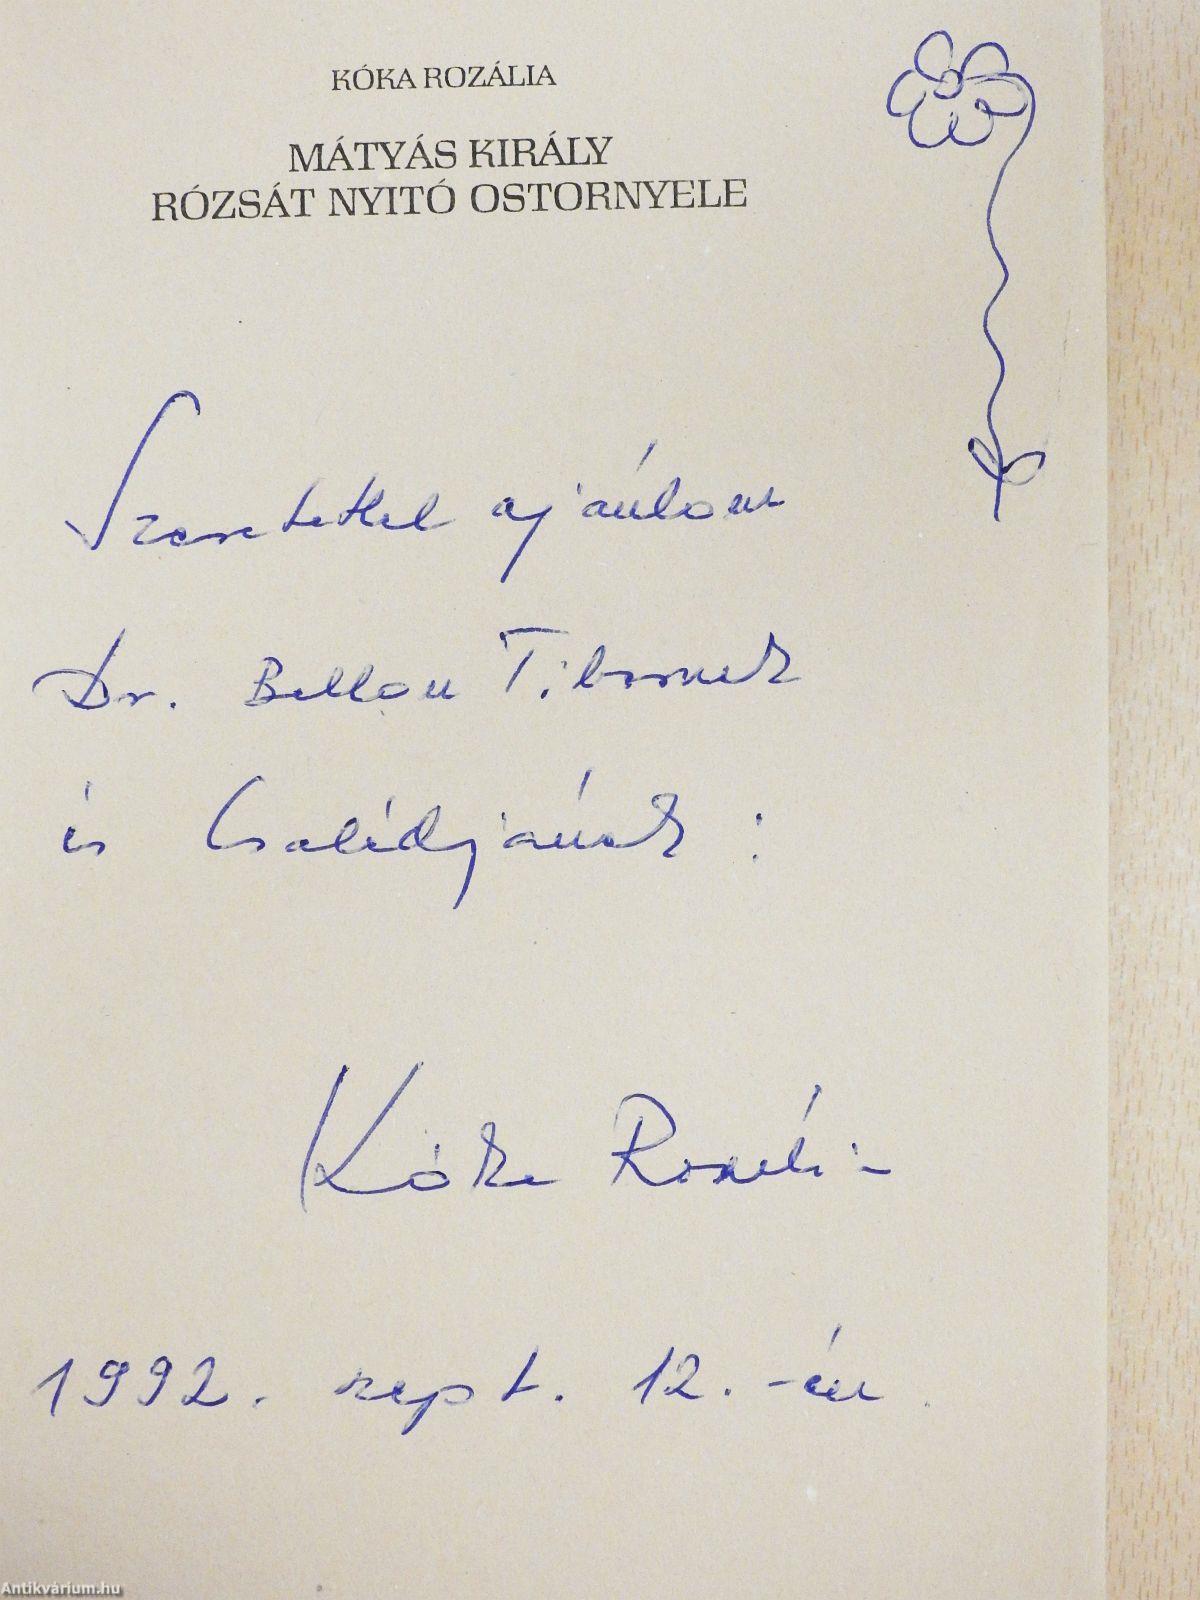 KÓKA ROZÁLIA
MÁTYÁS KIRÁLY
RÓZSÁT NYITÓ OSTORNYELE
Szeretettel ajánlom
Dr. Bellon Tibornak
és Családjának:
Kóka Rozália
1992. szept. 12.-én.
Antikvárium.hu